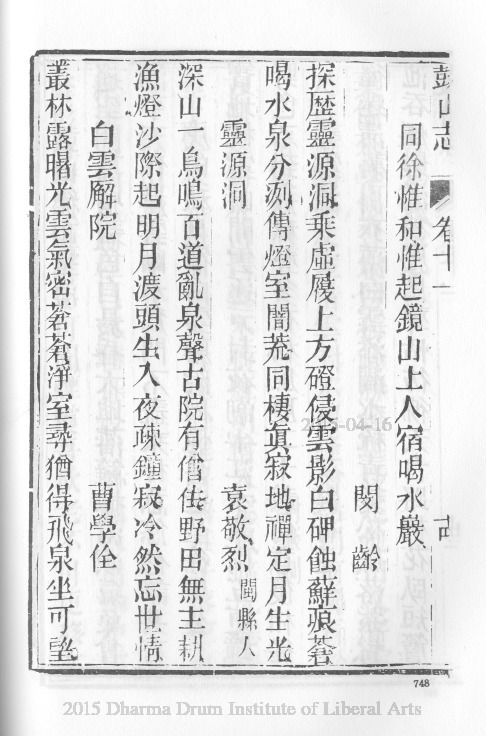 鼓山志
卷十一
同徐惟和惟起鏡山上人宿喝水巖
閔齡
探歷靈源洞乘虛屐上方磴侵雲影白碑蝕蘚痕蒼
喝水泉分洌傳燈室闇荒同棲眞寂地禪定月生光
靈源洞
袁敬烈 閩縣人
深山一鳥鳴百道亂泉聲古院有僧住野田無主耕
漁燈沙際起明月渡頭生入夜疎鐘寂冷然忘世情
白雲廨院
曹學佺
叢林露曙光雲氣密蒼蒼淨室尋猶得飛泉坐可望
748
2015 Dharma Drum Institute of Liberal Arts